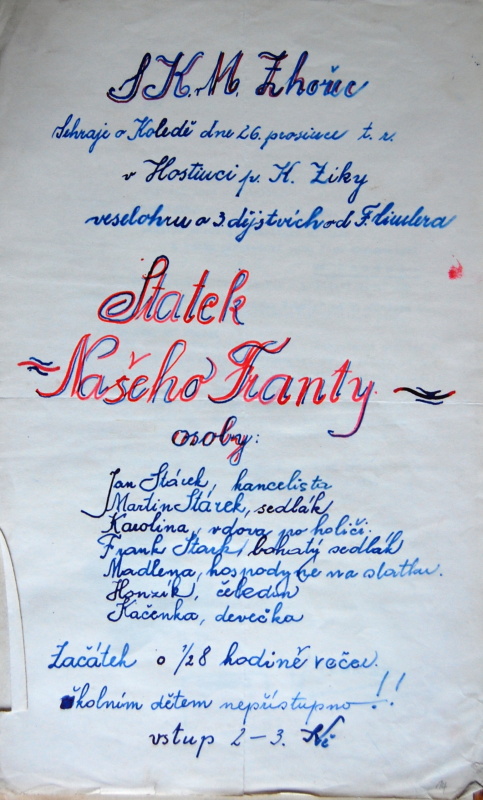 S.K.M. Zhořec
Sehraje o Koledě dne 26. prosince t. r.
v Hostinci p. K. Ziky
veselohru o 3. dějstvích od F.
Statek
Našeho Franty
osoby:
Jan Stárek, kancelista
Martin Stárek, sedlák
Karolina, vdova po holiči.
Frank Stark, bohatý sedlák
Madlena, hospodyně na statku.
Honzík, čeledín
Kačenka, devečka
Začátek o 1/28 hodině večer.
Školním dětem nepřístupno!!
vstup 2-3. Kč